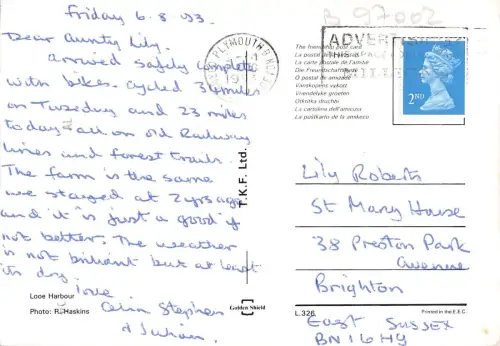 Friday 6.8.93.
Dear Aunty Lily.
Arrived safely complete
with bikes. Cycled 34 miles
on Tuesday and 23 miles
today - all on old Railway
lines and forest trails.
The farm is the same
we stayed at 2 yrs ago
and it is just a good if
not better. The weather
is not brilliant but at least
its dry.
love
Stephen
& Julian.
Looe Harbour
Photo: R. Haskins
T.K.F. Ltd.
Golden Shield
PLYMOUTH
B 97002
ADVERTISE
THIS
The friendship post card
La postal de la amistad
La carte postale de l'amitié
Die Freundschaftskarte
O postal de amizade
Vriendelijke groeten
La cartolina dell'amicizia
2ND
Lily Roberts
St Mary House
38 Preston Park
Avenue
Brighton
East SUSSEX
BN1 6HG
L.326
Printed in the E.E.C.